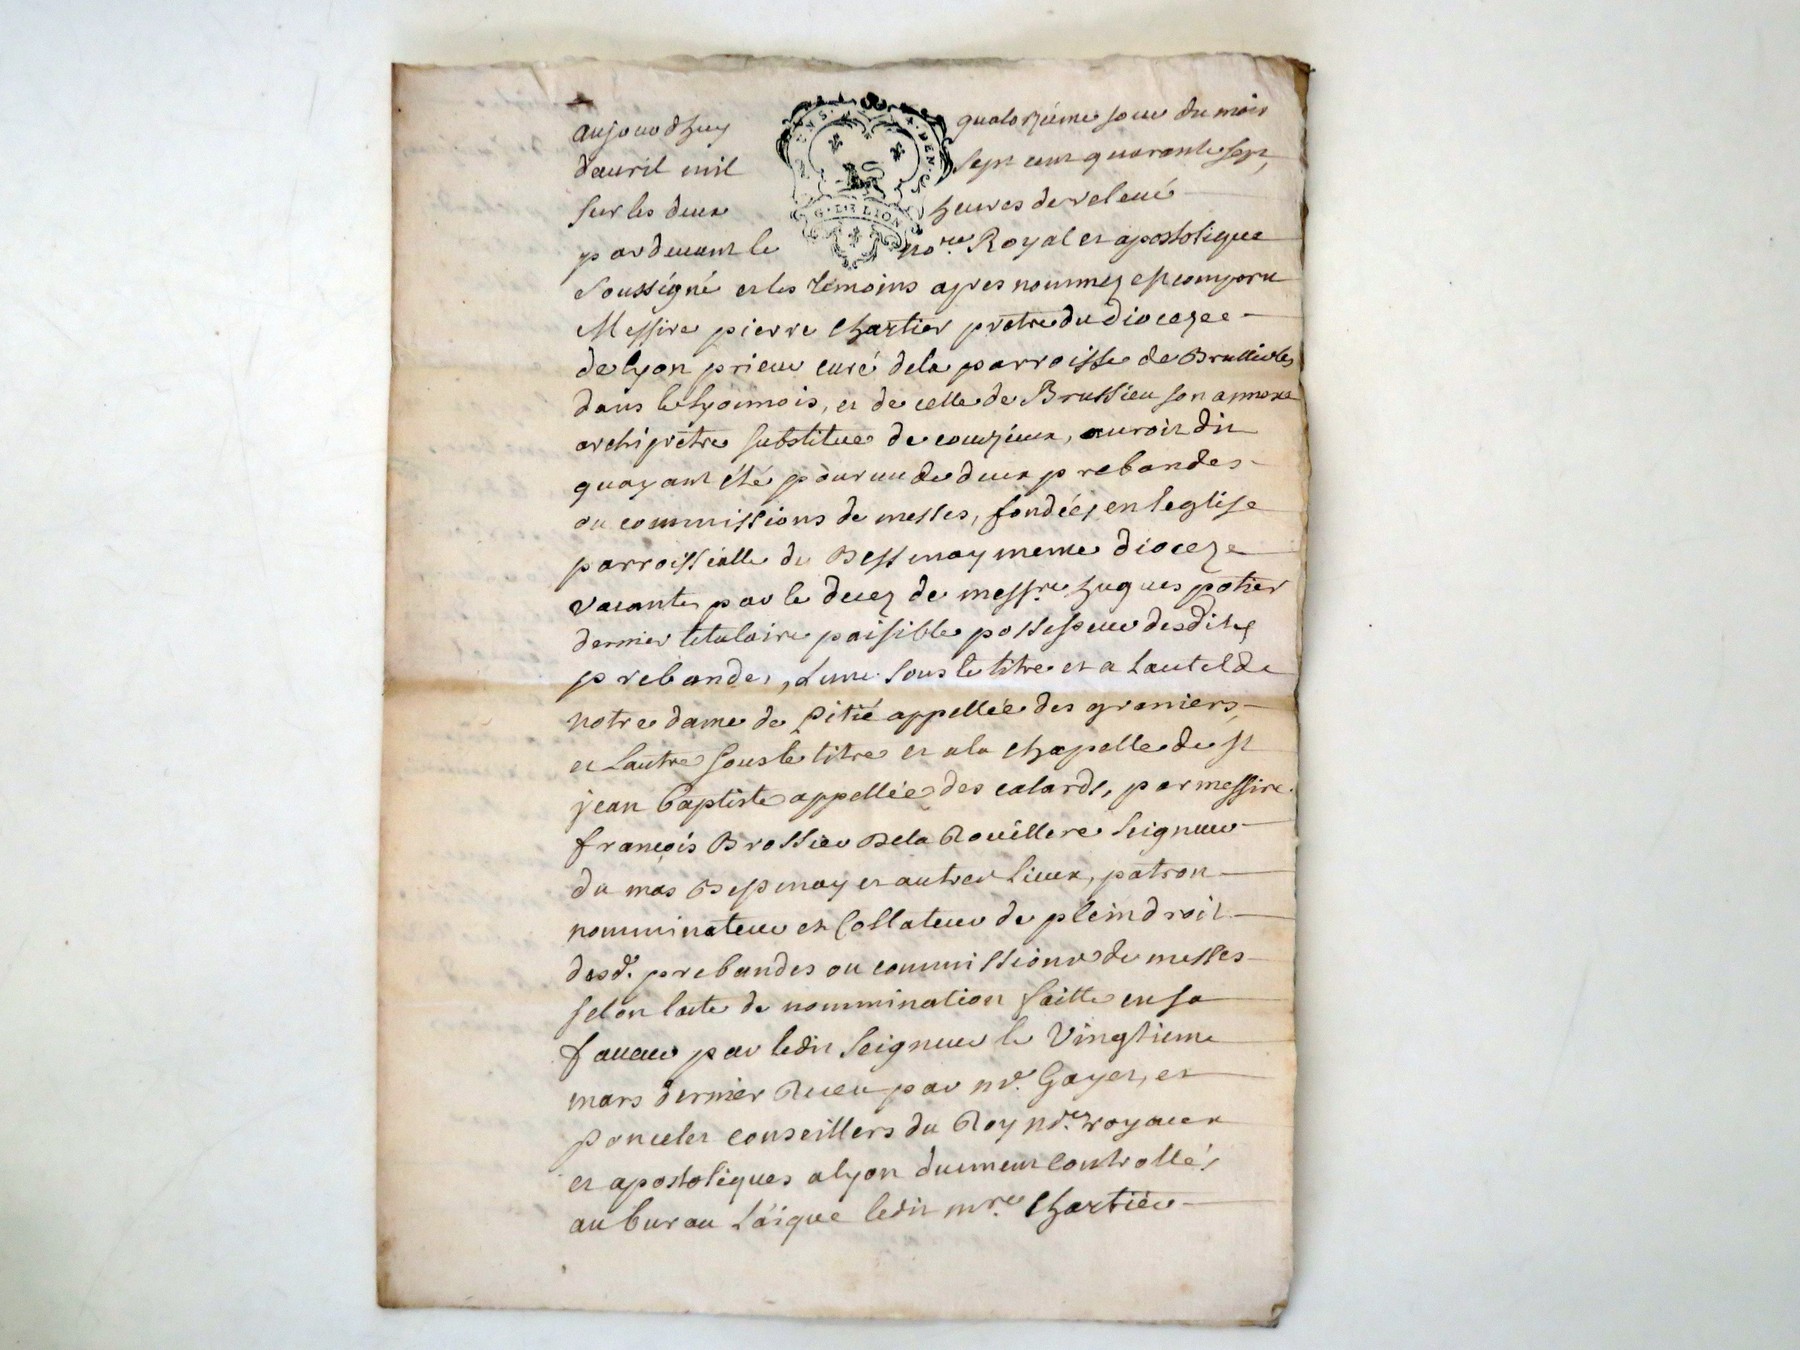 aujourdhuy quatorzieme jour du mois
davril mil sept cent quarante sept,
sur les deux heures de relevé
G. DE LION
pardevant le no.re Royal et apostolique
soussigné et les témoins apres nommez est comparu
Messire pierre Chartier prêtre du Diocezee
de lyon prieur curé dela parroisse de Brullioles
dans le lyonnois, et de celle de Brussieu son annexe
archiprêtre substitue de couzieux, auroit dit
quayant été pourvu de deux prebandes
ou commissions de messes, fondées en leglise
parroissialle de Bessenay meme dioceze
vacantes par le decez de mess.re hugues potier
dernier titulaire paisible possesseur desdites
prebandes, Lune sous le titre et a Lautel de
notre dame de pitié appellée des graniers,
et Lautre sous le titre et ala chapelle de st
jean baptiste appellée des calards, par messire
françois Brossier Dela Rouillere seigneur
du mas Bessenay et autres lieux, patron
nomminateur et Collateur de plein droit
desd. prebandes ou commissions de messes
selon lacte de nommination faitte en sa
faveur par ledit seigneur le vingtieme
mars dernier Receu par me. Gayet, et
poncelet conseillers du Roy no.res royaux
et apostoliques a lyon duement controllés
au bureau Laique ledit m.re Chartier